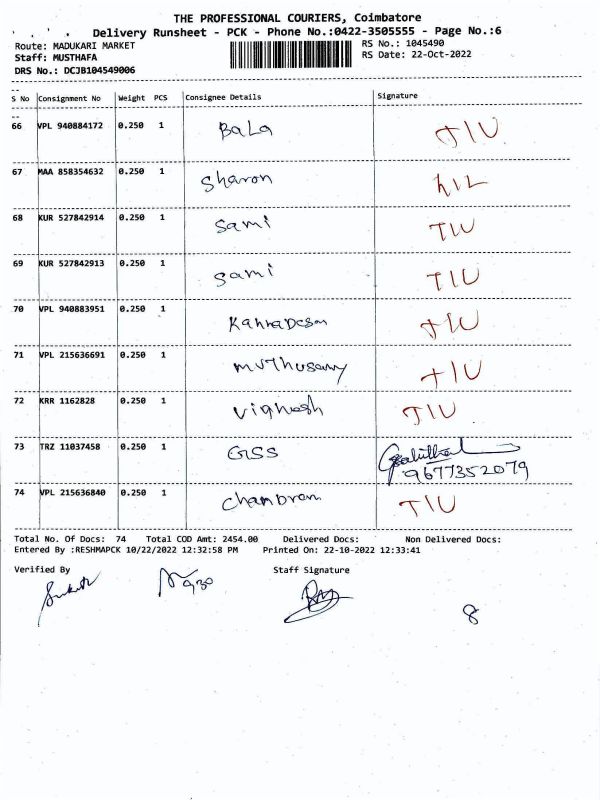 THE PROFESSIONAL COURIERS, Coimbatore
Delivery Runsheet - PCK - Phone No.:0422-3505555 - Page No.:6
Route: MADUKARI MARKET RS No.: 1045490
Staff: MUSTHAFA RS Date: 22-Oct-2022
DRS No.: DCJB104549006
S No Consignment No Weight PCS Consignee Details Signature
66 VPL 940884172 0.250 1 Bala TIU
67 MAA 858354632 0.250 1 Sharon
68 KUR 527842914 0.250 1 Sami TIU
69 KUR 527842913 0.250 1 Sami TIU
70 VPL 940883951 1 0.250 TIU
71 VPL 215636691 0.250 1 Muthusamy TIU
72 KRR 1162828 0.250 1 Vighesh TIU
73 TRZ 11037458 0.250 1 GSS
9677352079
74 VPL 215636840 0.250 1 Chandran TIU
Total No. Of Docs: 74 Total COD Amt: 2454.00 Delivered Docs: Non Delivered Docs:
Entered By :RESHMAPCK 10/22/2022 12:32:58 PM Printed On: 22-10-2022 12:33:41
Verified By Staff Signature
8